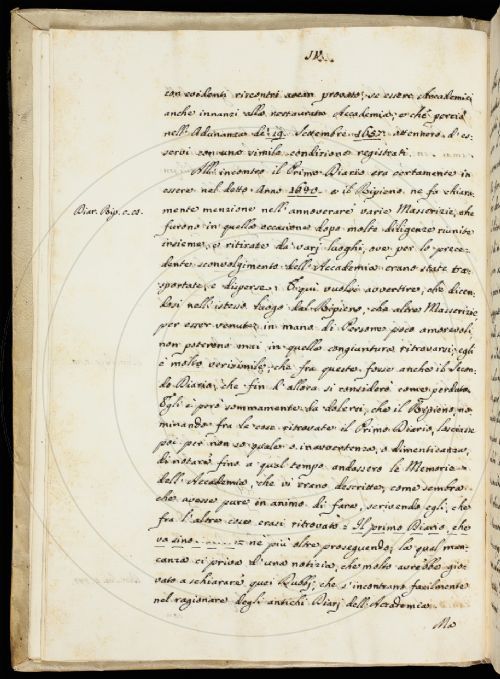 IV.
con evidenti riscontri avean provato, se essere Accademici
anche innanzi alla restaurata Accademia; e che perciò
nell'Adunanza de' 19. Settembre 1657. ottennero d'es-
servi con una simile condizione registrati.
All'incontro il Primo Diario era certamente in
essere nel detto Anno 1640. e il Ripieno ne fa chiara-
Diar. Rip. c. 02.
mente menzione nell'annoverare varie Masserizie, che
furono in quella occasione dopo molte diligenze riunite
insieme, e ritirate da varj luoghi, ove per lo prece-
dente sconvolgimento dell'Accademia erano state tra-
sportate, e disperse. E qui vuolsi avvertire, che dicen-
dosi nell'istesso luogo dal Ripieno, che altre Masserizie
per esser venute in mano di Persone poco amorevoli
non poterono mai in quella congiuntura ritrovarsi; egli
è molto verisimile, che fra queste fosse anche il Secon-
do Diario, che fin d'allora si considerò come perduto.
Egli è però sommamente da dolersi, che il Ripieno, no-
minando fra le cose ritrovate il Primo Diario, lasciasse
poi per non so quale o inavvertenza, o dimenticanza,
di notare fino a qual tempo andassero le Memorie
dell'Accademia, che vi erano descritte, come sembra
che avesse pure in animo di fare, scrivendo egli, che
fra l'altre cose erasi ritrovato = Il primo Diario, che
va sino ........ = ne più oltre proseguendo; la qual man-
canza ci privò d'una notizia, che molto avrebbe gio-
vato a schiarare quei Dubbj, che s'incontrano facilmente
nel ragionare degli antichi Diarj dell'Accademia.
Ma